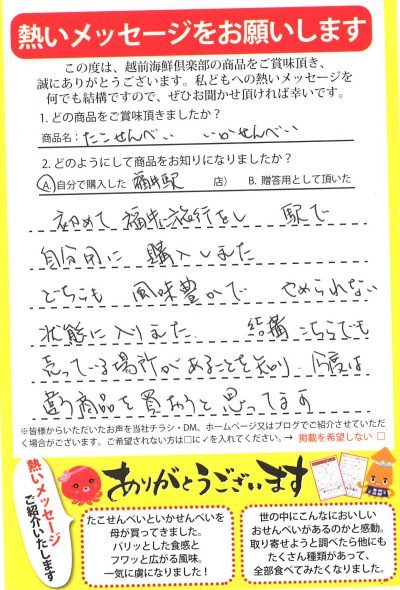 熱いメッセージをお願いします
この度は、越前海鮮倶楽部の商品をご賞味頂き、
誠にありがとうございます。私どもへの熱いメッセージを
何でも結構ですので、ぜひお聞かせ頂ければ幸いです。
1. どの商品をご賞味頂きましたか？
商品名：たこせんべい いかせんべい
2. どのようにして商品をお知りになりましたか？
A. 自分で購入した（福井駅 店） B. 贈答用として頂いた
初めて福井に旅行をし 駅で
自分用に 購入しました
どちらも 風味豊かで やめられない
状態に入りました 結構こちらでも
売っている場所があることを知り 今度は
違う商品を買おうと思ってます
※皆様からいただいたお声を当社チラシ・DM、ホームページ又はブログでご紹介させていただ
く場合がございます。ご希望されない方は□に✓を入れてください。→ 掲載を希望しない □
ありがとうございます
熱いメッセージ
ご紹介いたします
たこせんべいといかせんべいを
母が買ってきました。
パリッとした食感と
フワッと広がる風味。
一気に虜になりました！
世の中にこんなにおいしい
おせんべいがあるのかと感動。
取り寄せようと調べたら他にも
たくさん種類があって、
全部食べてみたくなりました。